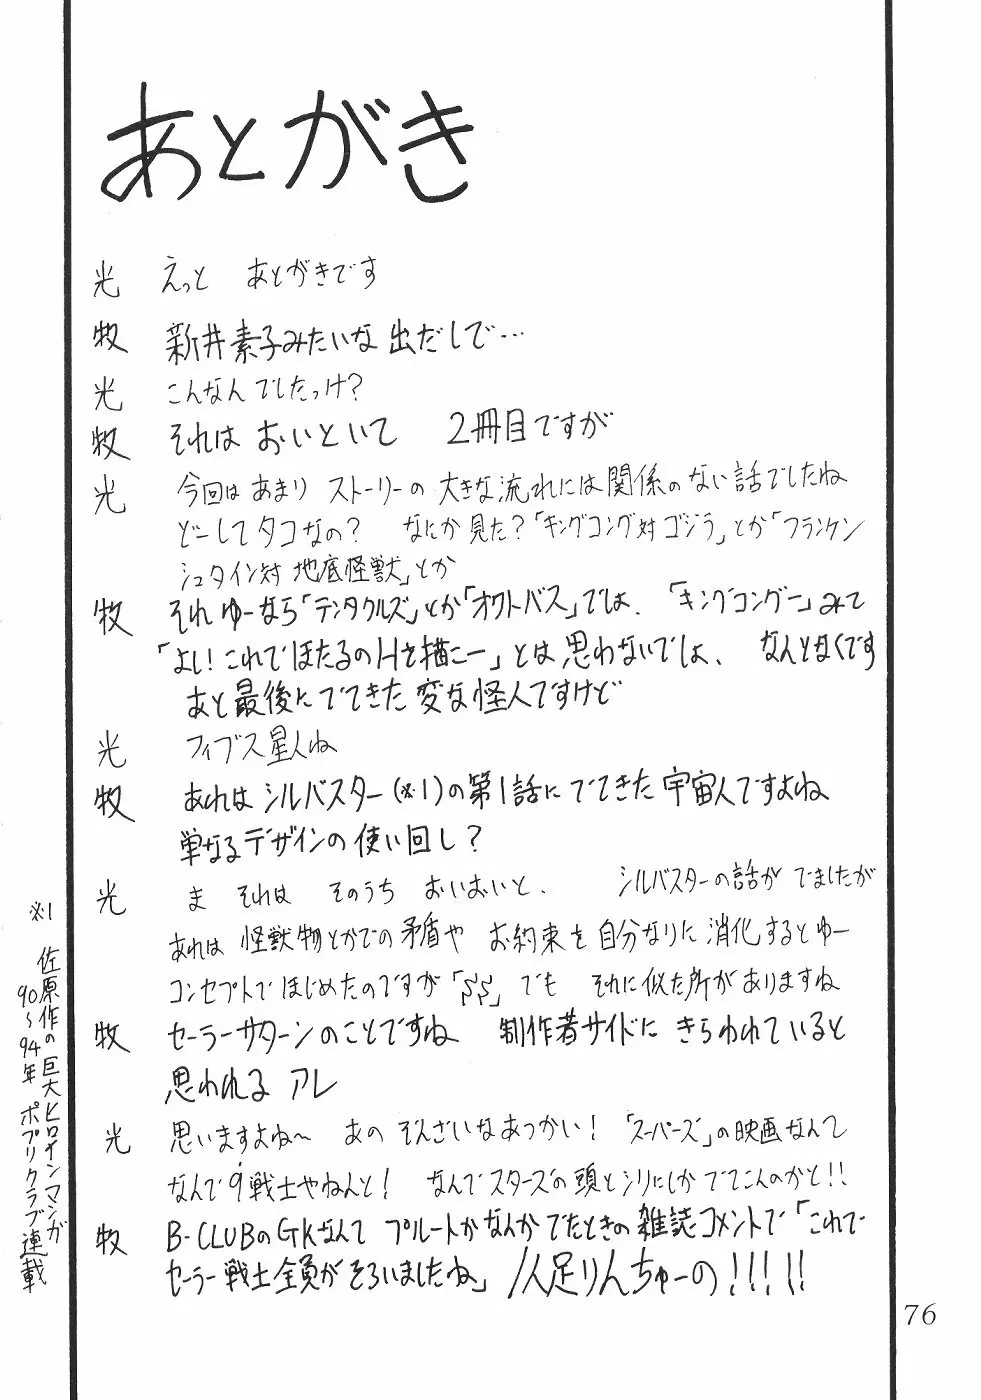 あとがき
光 えっと あとがきです
牧 新井素子みたいな出だしで…
光 こんなんでしたっけ?
牧 それは おいといて 2冊目ですが
光 今回はあまり ストーリーの大きな流れには関係のない話でしたね
どーしてタコなの? なにか見た?「キングコング対ゴジラ」とか「フランケン
シュタイン対 地底怪獣」とか
牧 それゆーなら「テンタクルズ」とか「オクトパス」では、「キングコングー」みて
「よし!これでほたるのHを描こー」とは思わないでしょ、なんとなくです
あと最後にでてきた変な怪人ですけど
光 フィブス星人ね
牧 あれはシルバスター(※1)の第1話にでてきた宇宙人ですよね
単なるデザインの使い回し?
光 ま それは そのうち おいおいと、 シルバスターの話がでましたが
あれは 怪獣物とかでの矛盾や お約束を自分なりに消化するとゆー
コンセプトではじめたのですが「SS」でも それに似た所がありますね
牧 セーラーサターンのことですね 制作者サイドにきらわれていると
思われる アレ
光 思いますよね〜 あの ぞんざいなあつかい!「スーパーズ」の映画なんて
なんで9戦士やねんと! なんでスターズの頭とシリにしかでてこんのかと!!
牧 B-CLUBのGKなんて プルートかなんかでたときの雑誌コメントで「これで
セーラー戦士全員がそろいましたね」1人足りんちゅーの!!!!!
※1 佐原作の巨大ヒロインマンガ
90〜94年 ポプリクラブ連載
76